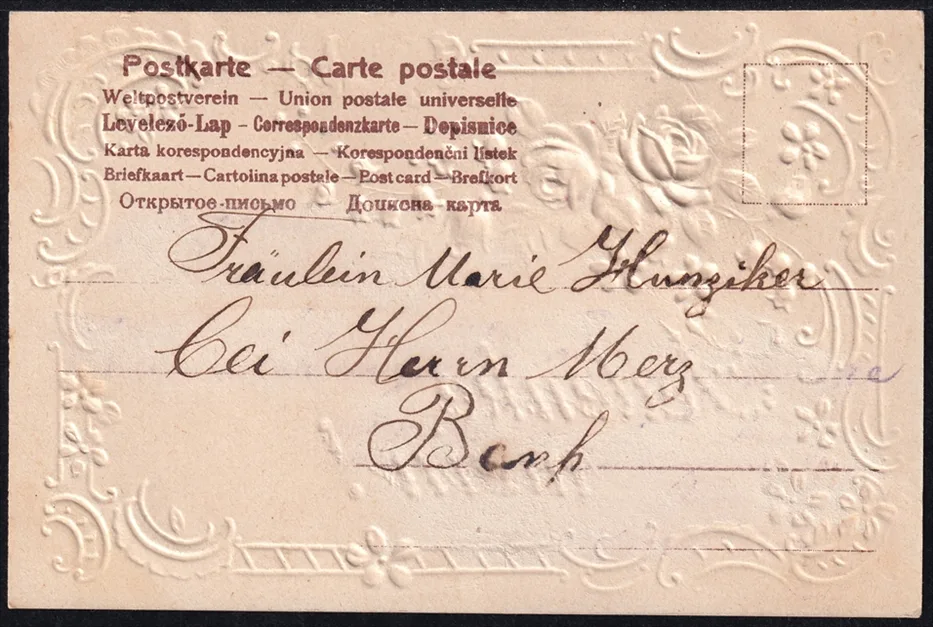 Postkarte — Carte postale
Weltpostverein — Union postale universelle
Levelező-Lap – Correspondenzkarte – Dopisnice
Karta korespondencyjna — Korespondenčni listek
Briefkaart — Cartolina postale — Post card — Brefkort
Открытое письмо — Дописна карта
Fräulein Marie Hunziker
bei Herrn Merz